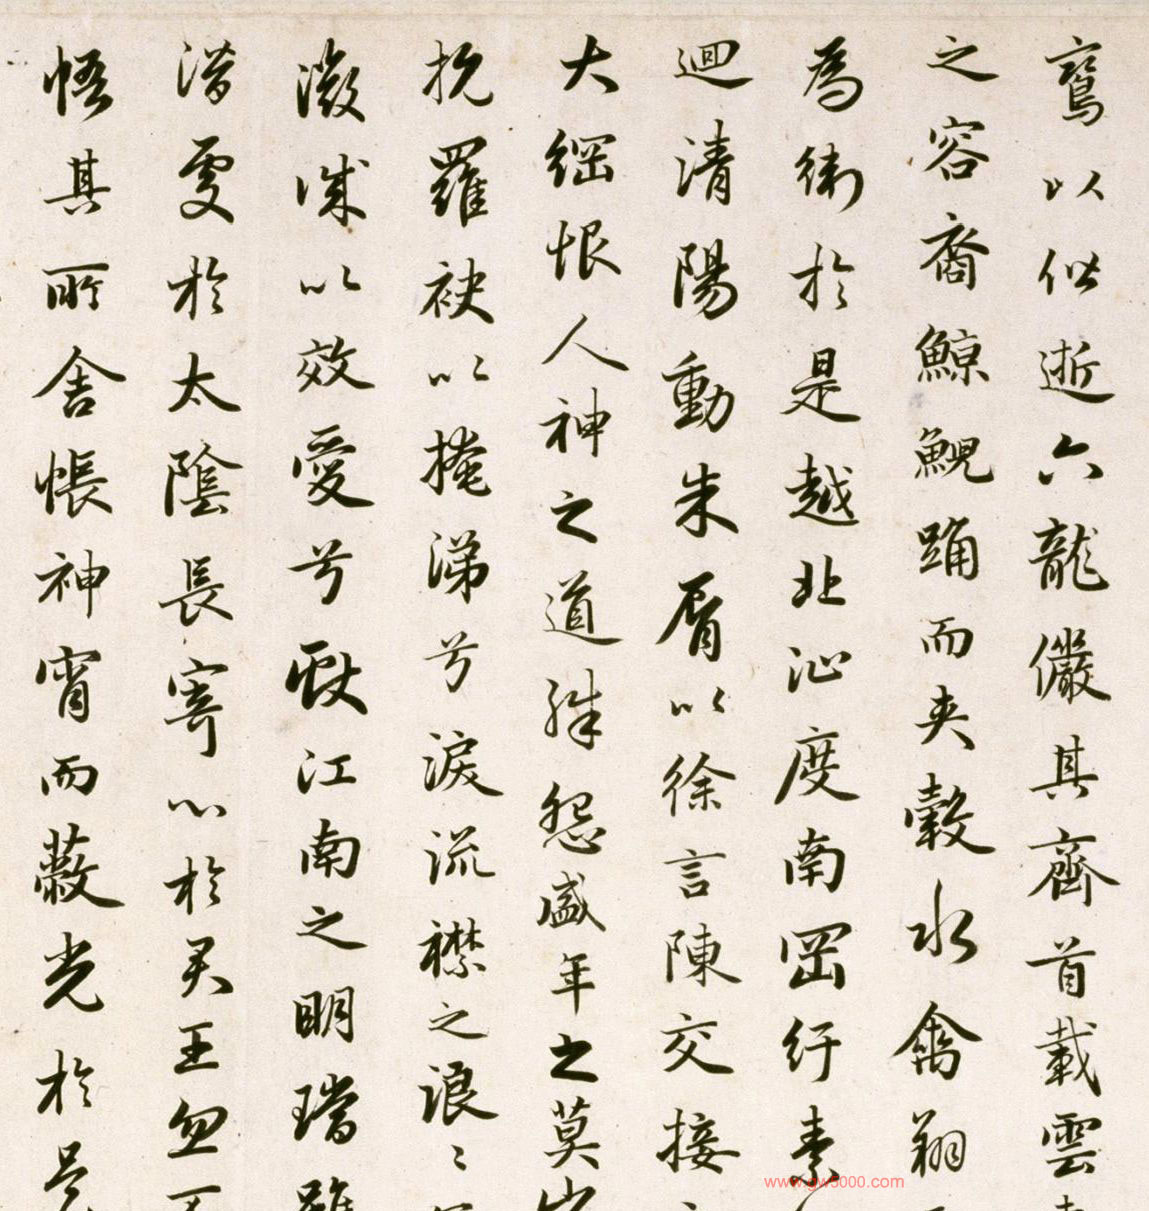 鸞以偕逝六龍儼其齊首載雲
之容裔鯨鯢踊而夾轂水禽翔
為衛於是越北沚度南岡紆素
迴清陽動朱脣以徐言陳交接
大綱恨人神之道殊怨盛年之莫
抗羅袂以掩涕兮淚流襟之浪〻
微誠以效愛兮獻江南之明璫雖
潛處於太陰長寄心於君王忽不
悟其所舍悵神宵而蔽光於是
www.gw5000.com